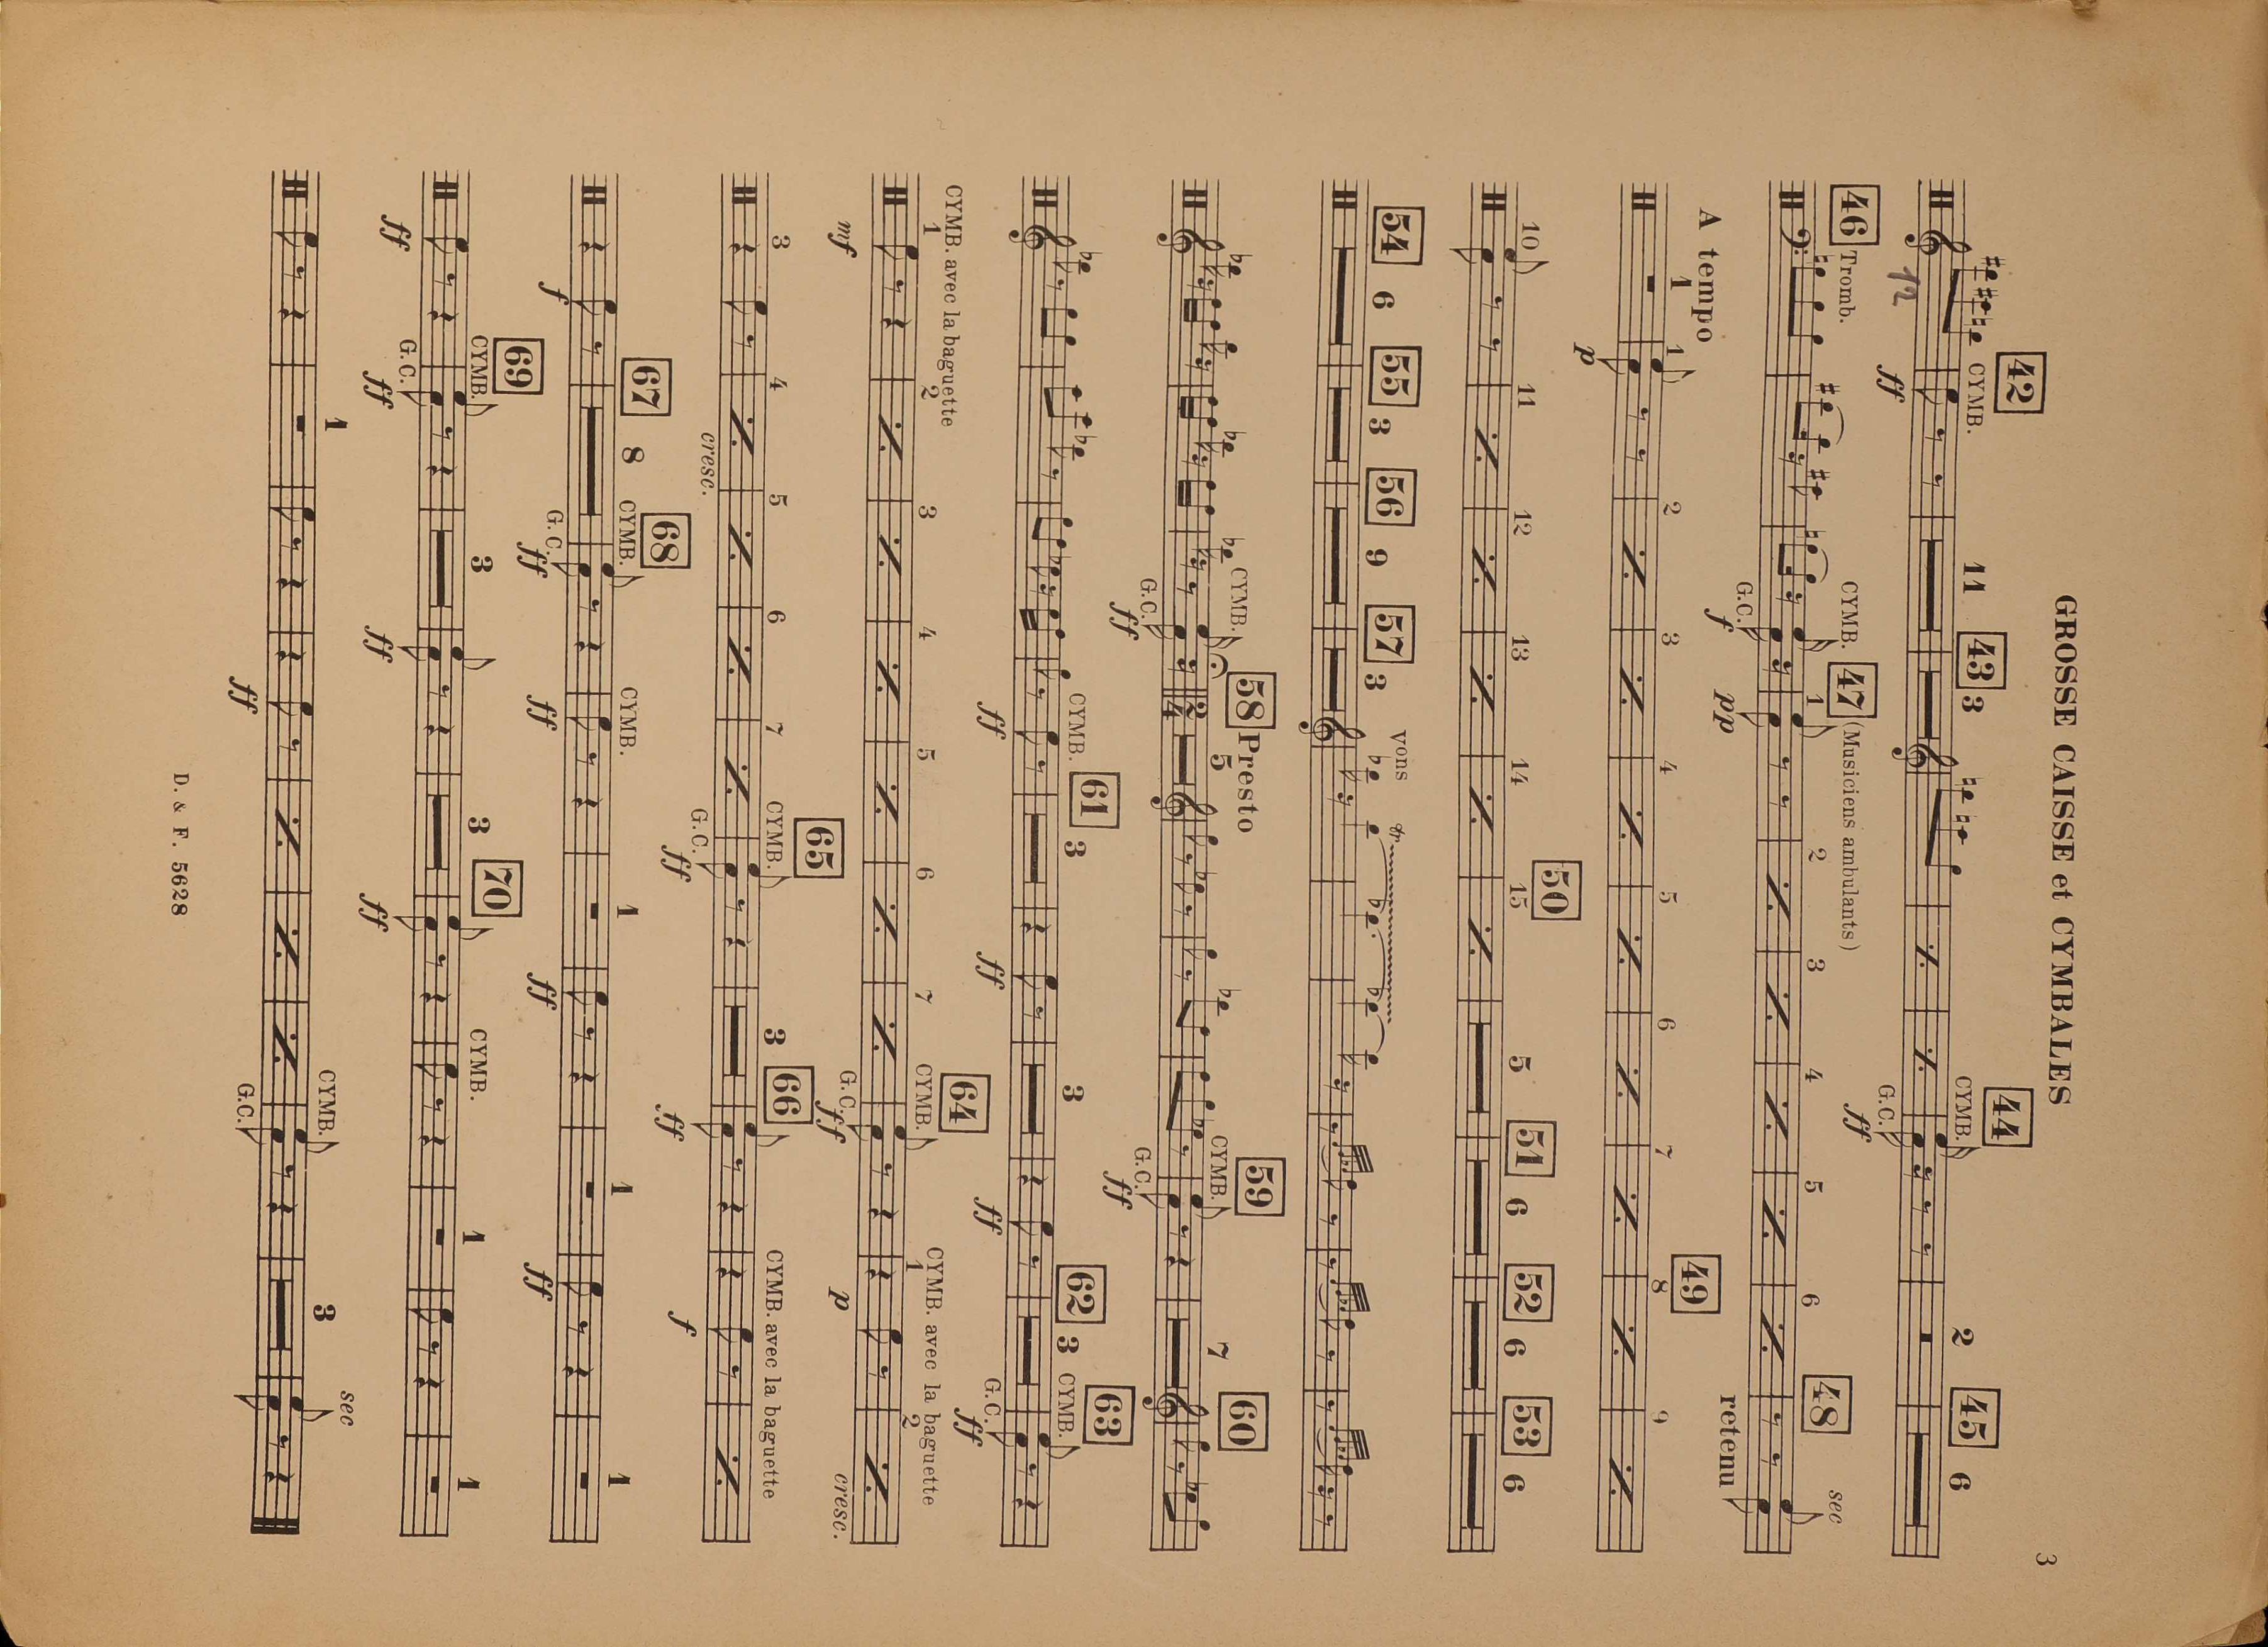 GROSSE CAISSE et CYMBALES
3
42
CYMB.
ff
12
11
43
3
44
CYMB.
G.C.
ff
2
45
6
46
Tromb.
CYMB.
G.C.
f
47
(Musiciens ambulants)
pp
1 2 3 4 5 6
48
sec
retenu
A tempo
1
p
1 2 3 4 5 6 7
49
8 9
10 11 12 13 14
50
15
5
51
6
52
6
53
6
54
6
55
3
56
9
57
3
vons
tr
CYMB.
G.C.
ff
58
Presto
5
59
CYMB.
G.C.
ff
7
60
CYMB.
ff
61
3
ff
3
ff
62
3
63
CYMB.
G.C.
ff
CYMB. avec la baguette
mf
1 2 3 4 5 6 7
64
CYMB.
G.C.
ff
CYMB. avec la baguette
1 2
p
cresc.
3 4 5 6 7
cresc.
65
CYMB.
G.C.
ff
3
66
ff
CYMB. avec la baguette
f
f
67
8
68
CYMB.
G.C.
ff
CYMB.
ff
1
ff
1
ff
1
ff
69
CYMB.
G.C.
ff
3
ff
3
70
ff
CYMB.
1
1
1
ff
CYMB.
G.C.
3
sec
D. & F. 5628